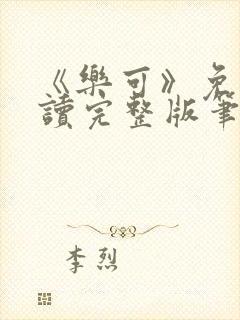 《樂可》免
讀完整版筆
李烈